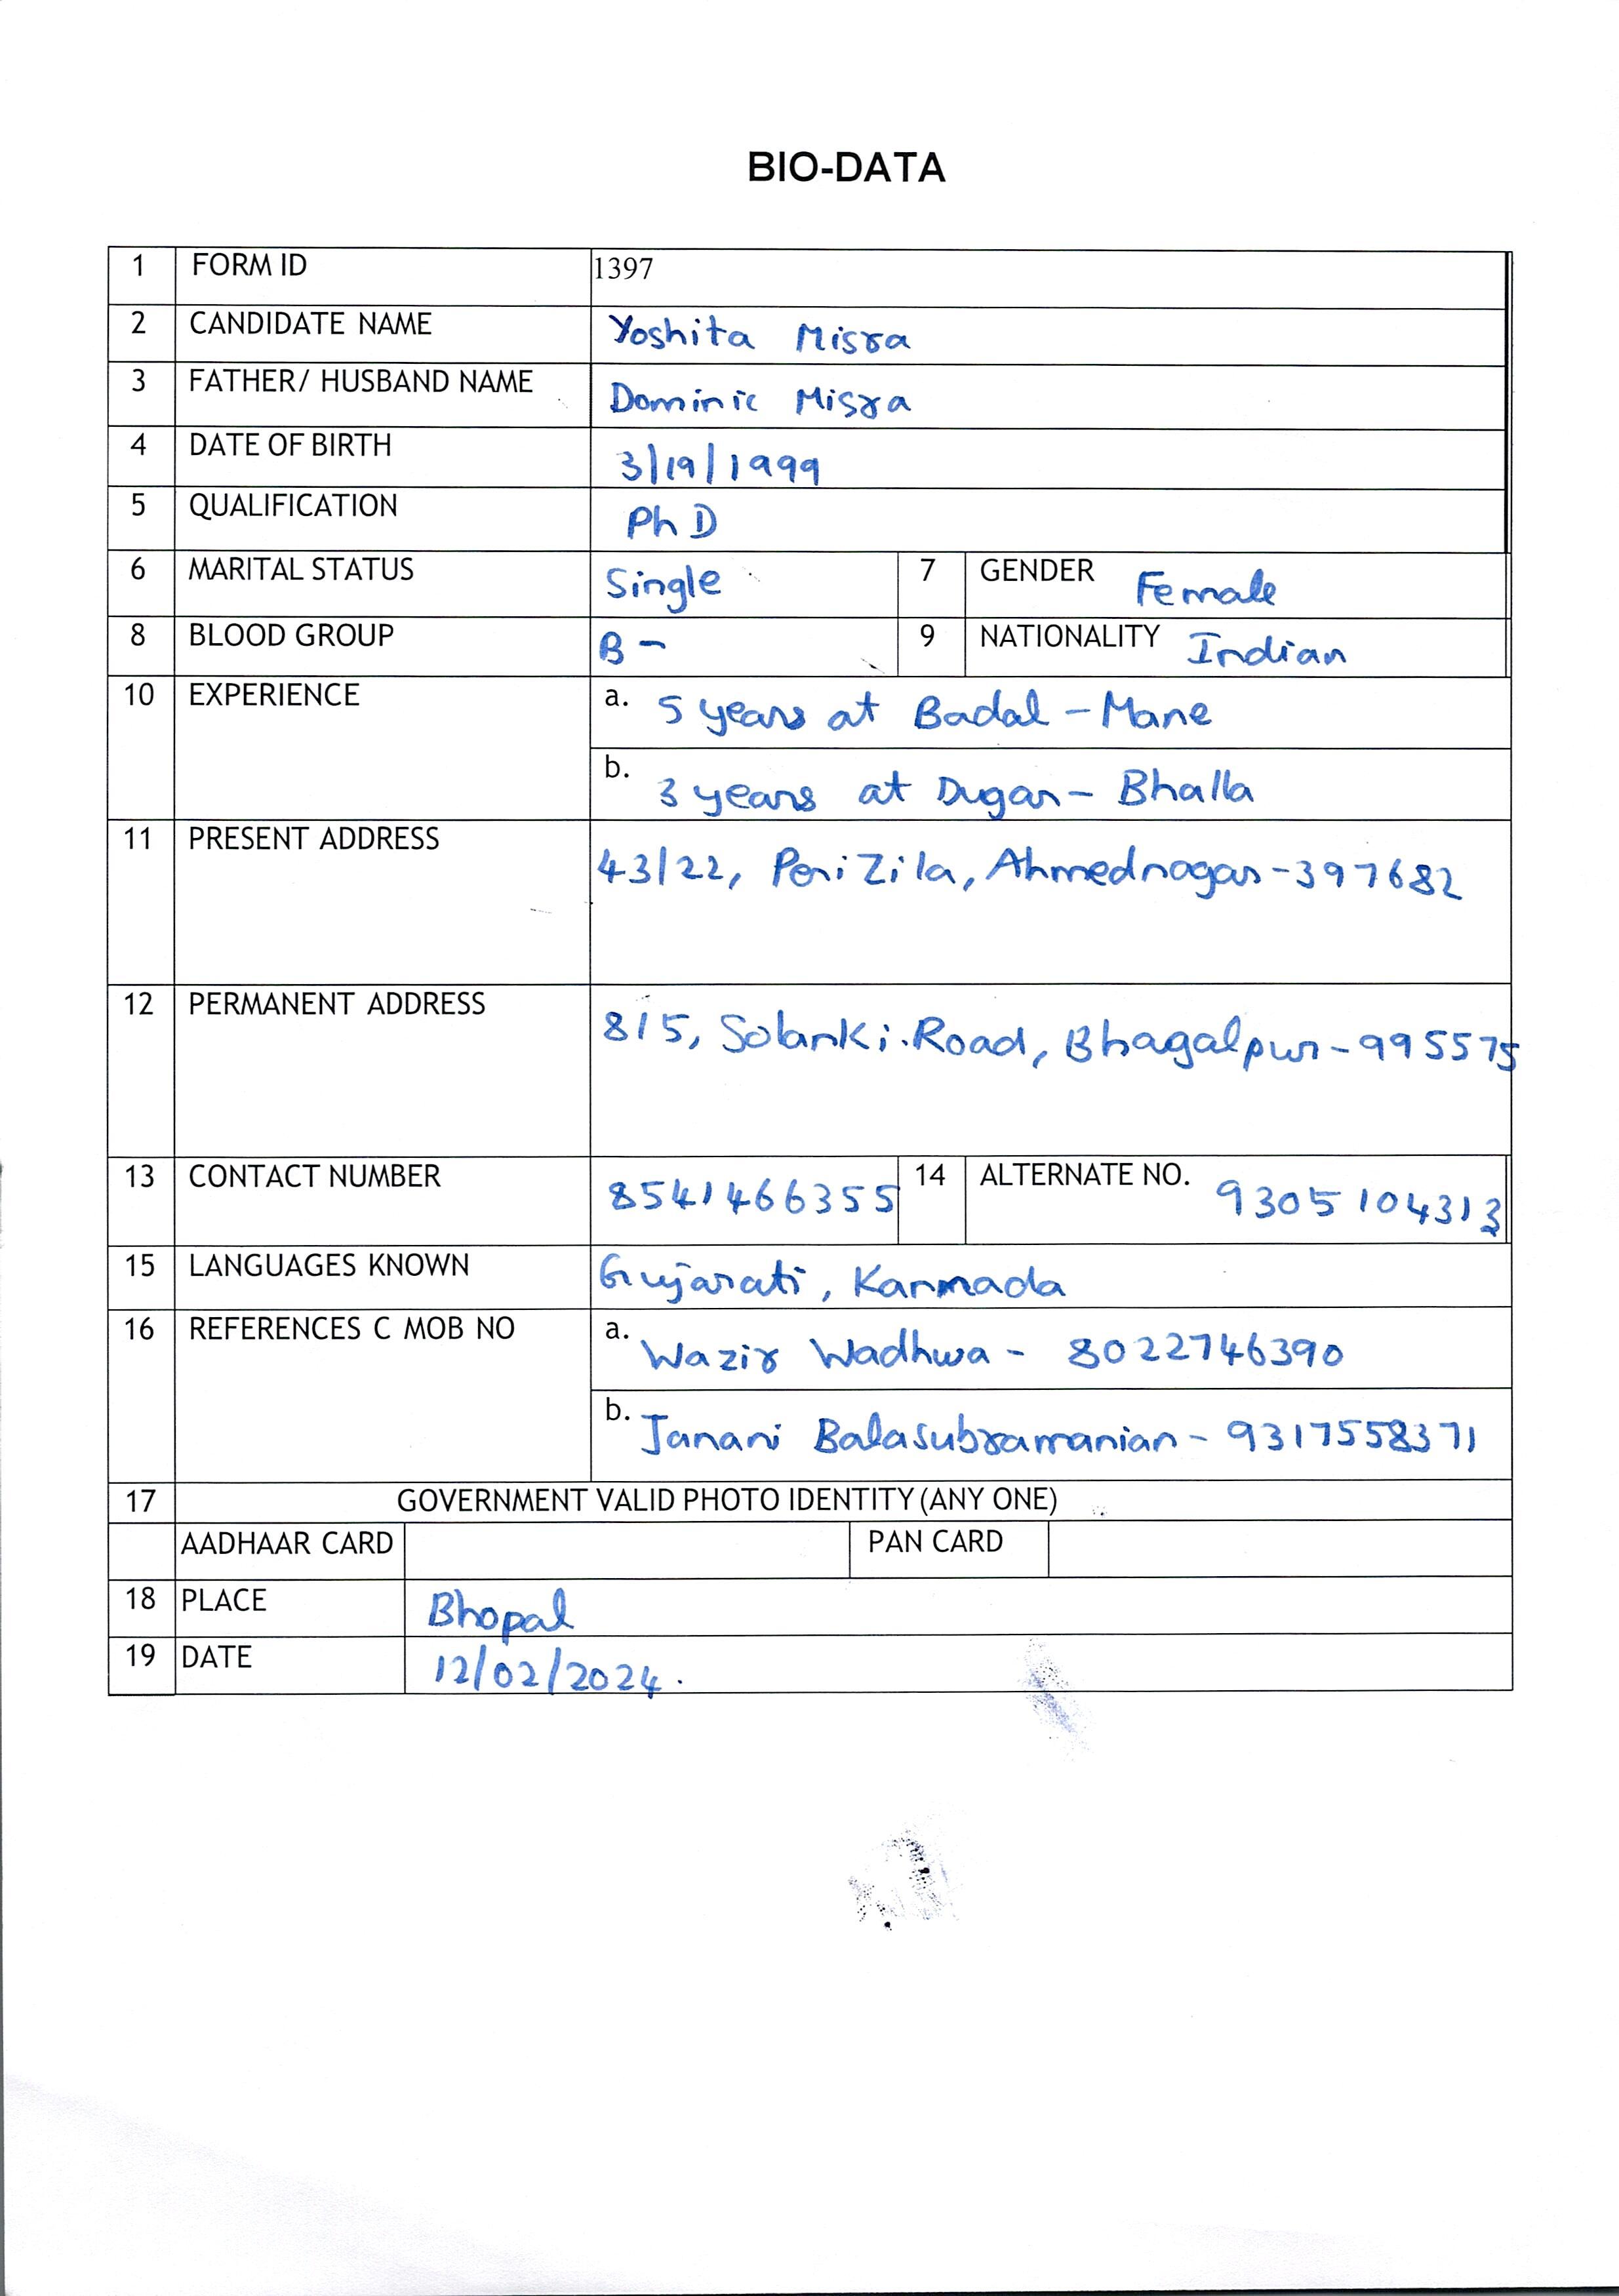 BIO-DATA
1 FORM ID 1397
2 CANDIDATE NAME Yoshita Misra
3 FATHER/ HUSBAND NAME Dominic Misra
4 DATE OF BIRTH 3/19/1999
5 QUALIFICATION Ph D
6 MARITAL STATUS Single 7 GENDER Female
8 BLOOD GROUP B- 9 NATIONALITY Indian
10 EXPERIENCE a. 5 years at Badal - Mane
b. 3 years at Dugar - Bhalla
11 PRESENT ADDRESS 43/22, Peri Zila, Ahmednagar - 397682
12 PERMANENT ADDRESS 815, Solanki Road, Bhagalpur - 995575
13 CONTACT NUMBER 8541466355 14 ALTERNATE NO. 9305104313
15 LANGUAGES KNOWN Gujarati, Kannada
16 REFERENCES C MOB NO a. Wazir Wadhwa - 8022746390
b. Janani Balasubramanian - 9317558371
17 GOVERNMENT VALID PHOTO IDENTITY (ANY ONE)
AADHAAR CARD PAN CARD
18 PLACE Bhopal
19 DATE 12/02/2024.